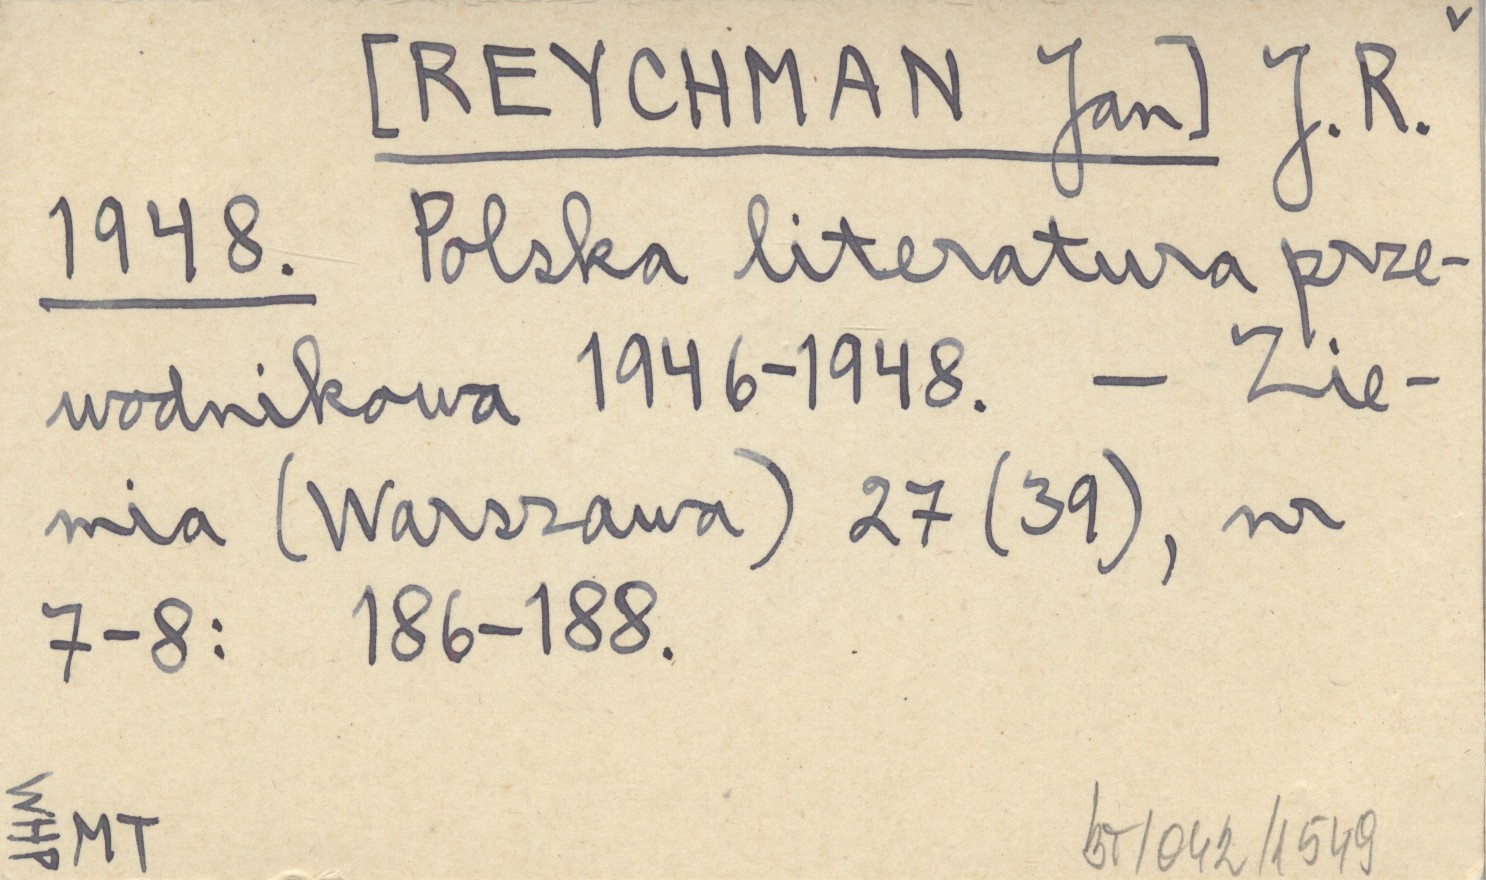 [REYCHMAN Jan] J. R.
1948. Polska literatura prze-
wodnikowa 1946-1948. — Zie-
mia (Warszawa) 27 (39), nr
7-8: 186-188.
WHP
MT
/042/1549